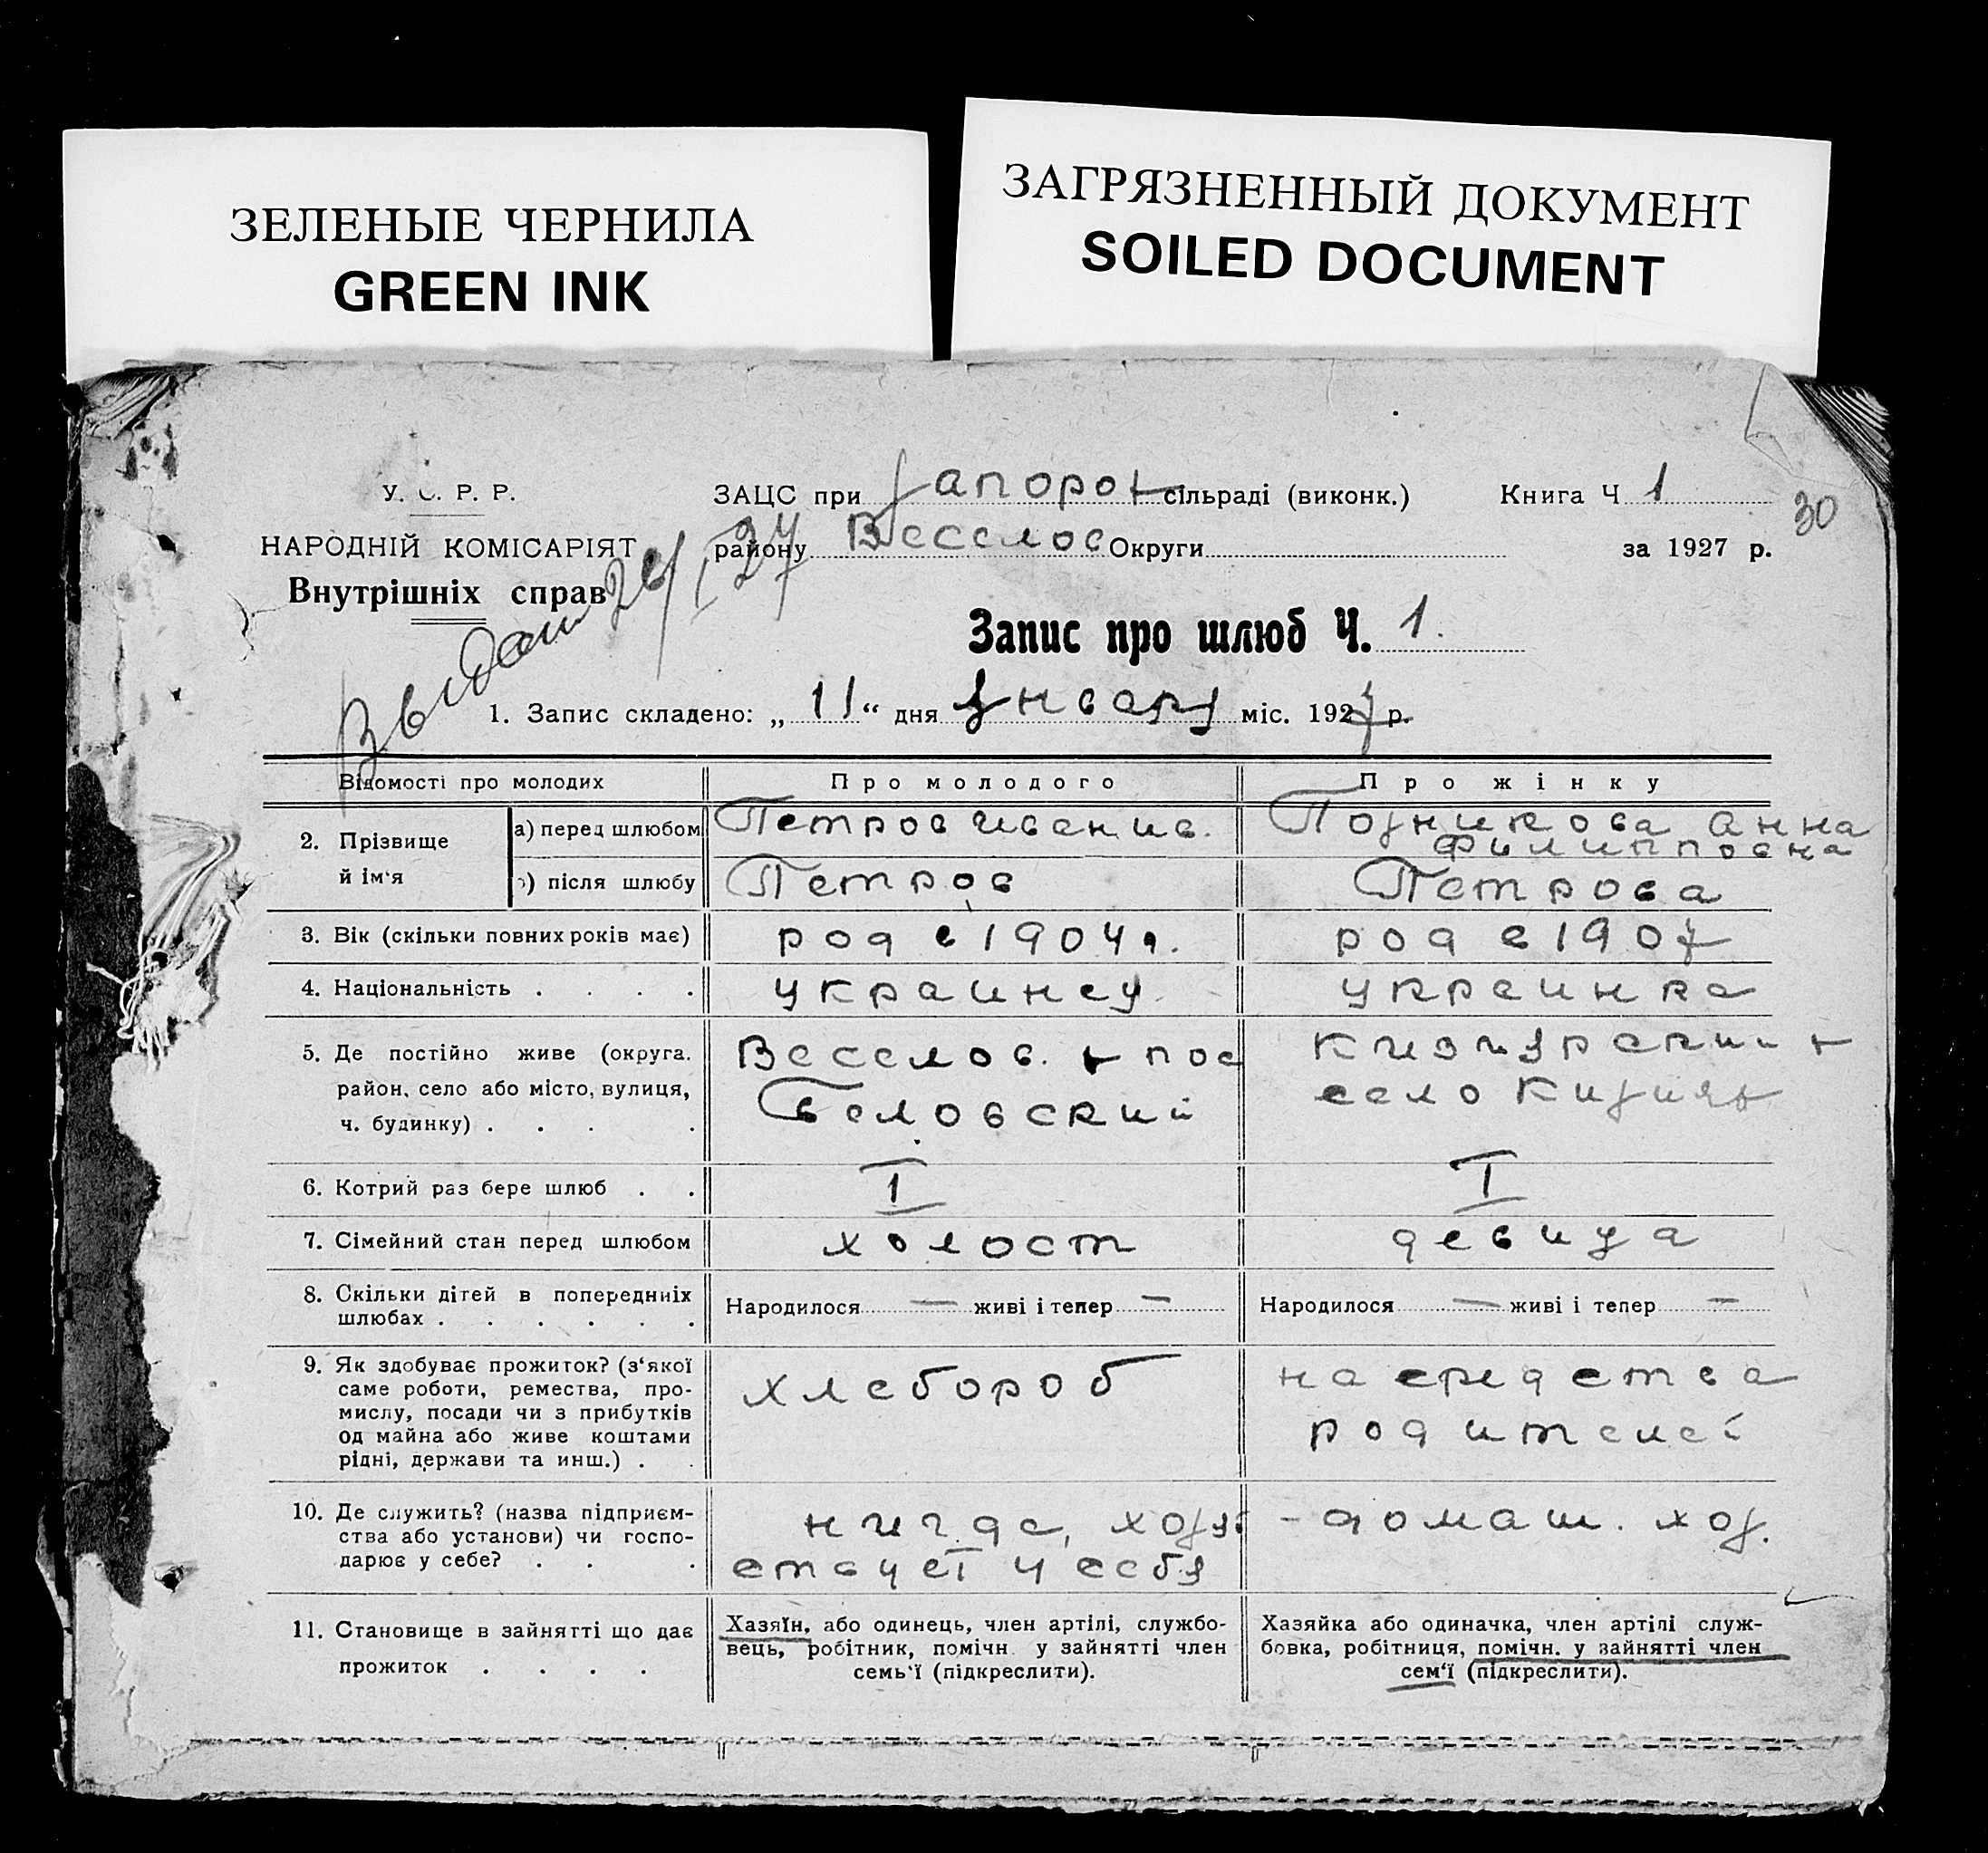 ЗЕЛЕНЫЕ ЧЕРНИЛА
GREEN INK
ЗАГРЯЗНЕННЫЙ ДОКУМЕНТ
SOILED DOCUMENT
У. С. Р. Р.
НАРОДНІЙ КОМІСАРІЯТ
Внутрішніх справ
ЗАЦС при Запорож сільраді (виконк.)
Книга Ч 1
30
району Веселов Округи
за 1927 р.
Выдан 26/I 27
Запис про шлюб Ч. 1.
1. Запис складено: „ 11 “ дня января міс. 1927 р.
Відомості про молодих
Про молодого
Про жінку
2. Прізвище й ім‘я
а) перед шлюбом
Петров Иван Ив.
Позникова Анна
Филипповна
б) після шлюбу
Петров
Петрова
3. Вік (скільки повних років має)
род в 1904 г.
род в 1907
4. Національність . . . .
украинец
украинка
5. Де постійно живе (округа.
район, село або місто, вулиця,
ч. будинку) . . . .
Веселов. р пос
Беловский
село Кизияр
6. Котрий раз бере шлюб . .
I
I
7. Сімейний стан перед шлюбом
холост
девица
8. Скільки дітей в попередніх
шлюбах . . . . . .
Народилося — живі і тепер —
Народилося — живі і тепер —
9. Як здобуває прожиток? (з‘якої
саме роботи, ремества, про-
мислу, посади чи з прибутків
од майна або живе коштами
рідні, держави та инш.) . .
хлебороб
на средства
родителей
10. Де служить? (назва підприєм-
ства або установи) чи госпо-
дарює у себе? . . .
нигде, хозяй
ствует у себя
- домаш. хоз.
11. Становище в зайнятті що дає
прожиток . . . .
Хазяїн, або одинець, член артілі, службо-
вець, робітник, помічн. у зайнятті член
семь‘ї (підкреслити).
Хазяйка або одиначка, член артілі служ-
бовка, робітниця, помічн. у зайнятті член
сем‘ї (підкреслити).